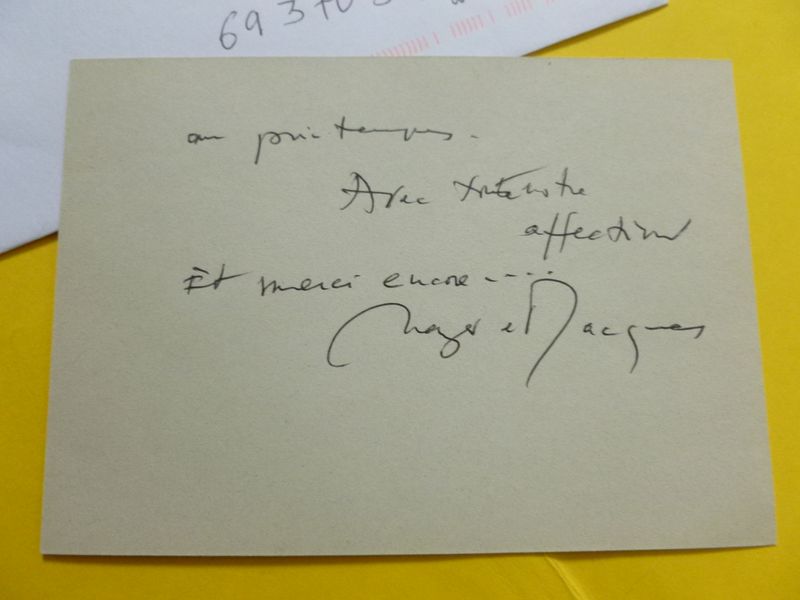 69370
au printemps.
Avec toute notre
affection
Et merci encore.....
et Jacques